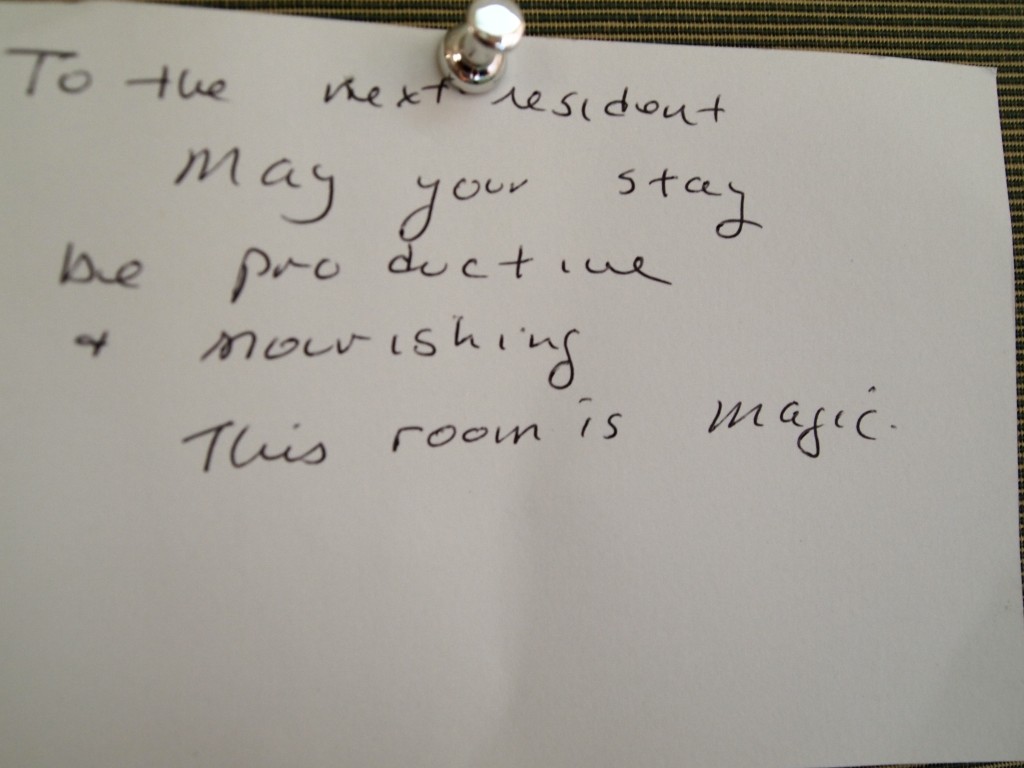 To the next resident
May your stay
be productive
+ nourishing
This room is magic.